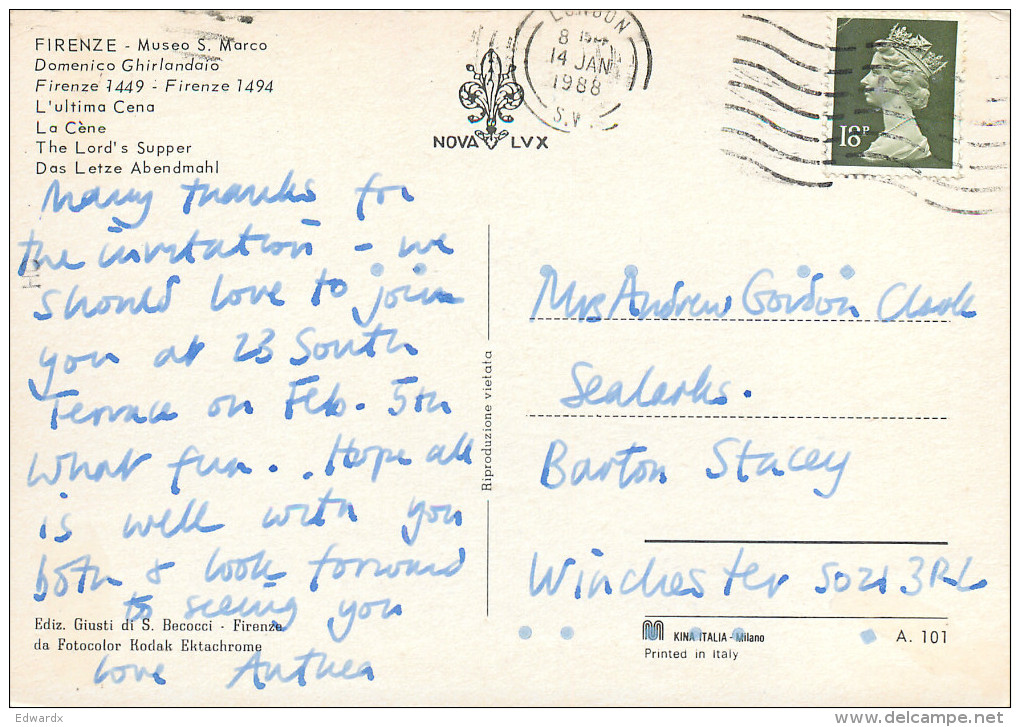 FIRENZE - Museo S. Marco
Domenico Ghirlandaio
Firenze 1449 - Firenze 1494
L'ultima Cena
La Cène
The Lord's Supper
Das Letze Abendmahl
NOVA LVX
LONDON
14 JAN
1988
S.W.
18P
Many thanks for
the invitation - we
should love to join
you at 23 South
Terrace on Feb. 5th
What fun. . Hope all
is well with you
both & look forward
to seeing you
love Anthea
Ediz. Giusti di S. Becocci - Firenze
da Fotocolor Kodak Ektachrome
Riproduzione vietata
Mrs Andrew Gordon Clark
Sealarks.
Barton Stacey
Winchester SO21 3RL
KINA ITALIA - Milano
Printed in Italy
A. 101
Edwardx
delcampe.net